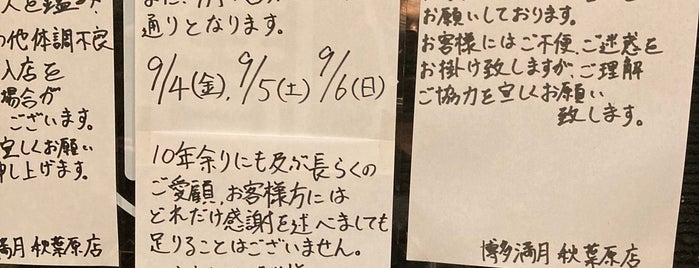 の他体調不良
入店を
場合が
ございます。
宜しくお願い
申し上げます。
満月 秋葉原店
通りとなります。
9/4(金)、9/5(土) 9/6(日)
10年余りにも及ぶ長らくの
ご愛顧、お客様方には
どれだけ感謝を述べましても
足りることはございません。
お願いしております。
お客様にはご不便、ご迷惑を
お掛け致しますが、ご理解
ご協力を宜しくお願い
致します。
博多満月 秋葉原店